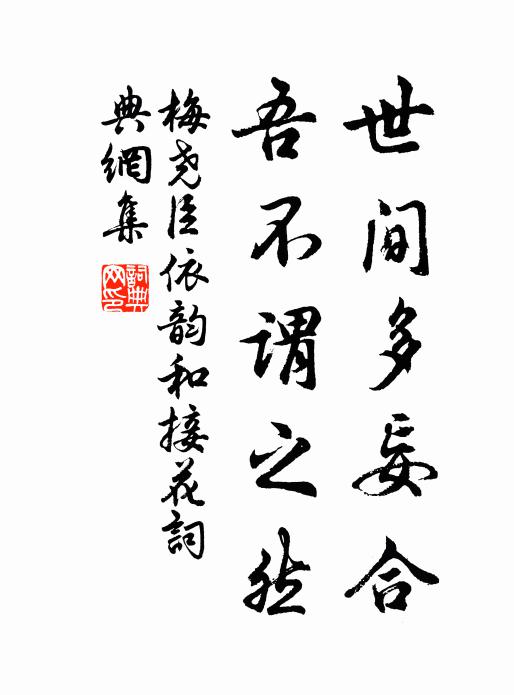 世間多妄合
吾不謂之然
梅堯臣依韵和接花詞
典網集
詞典網印